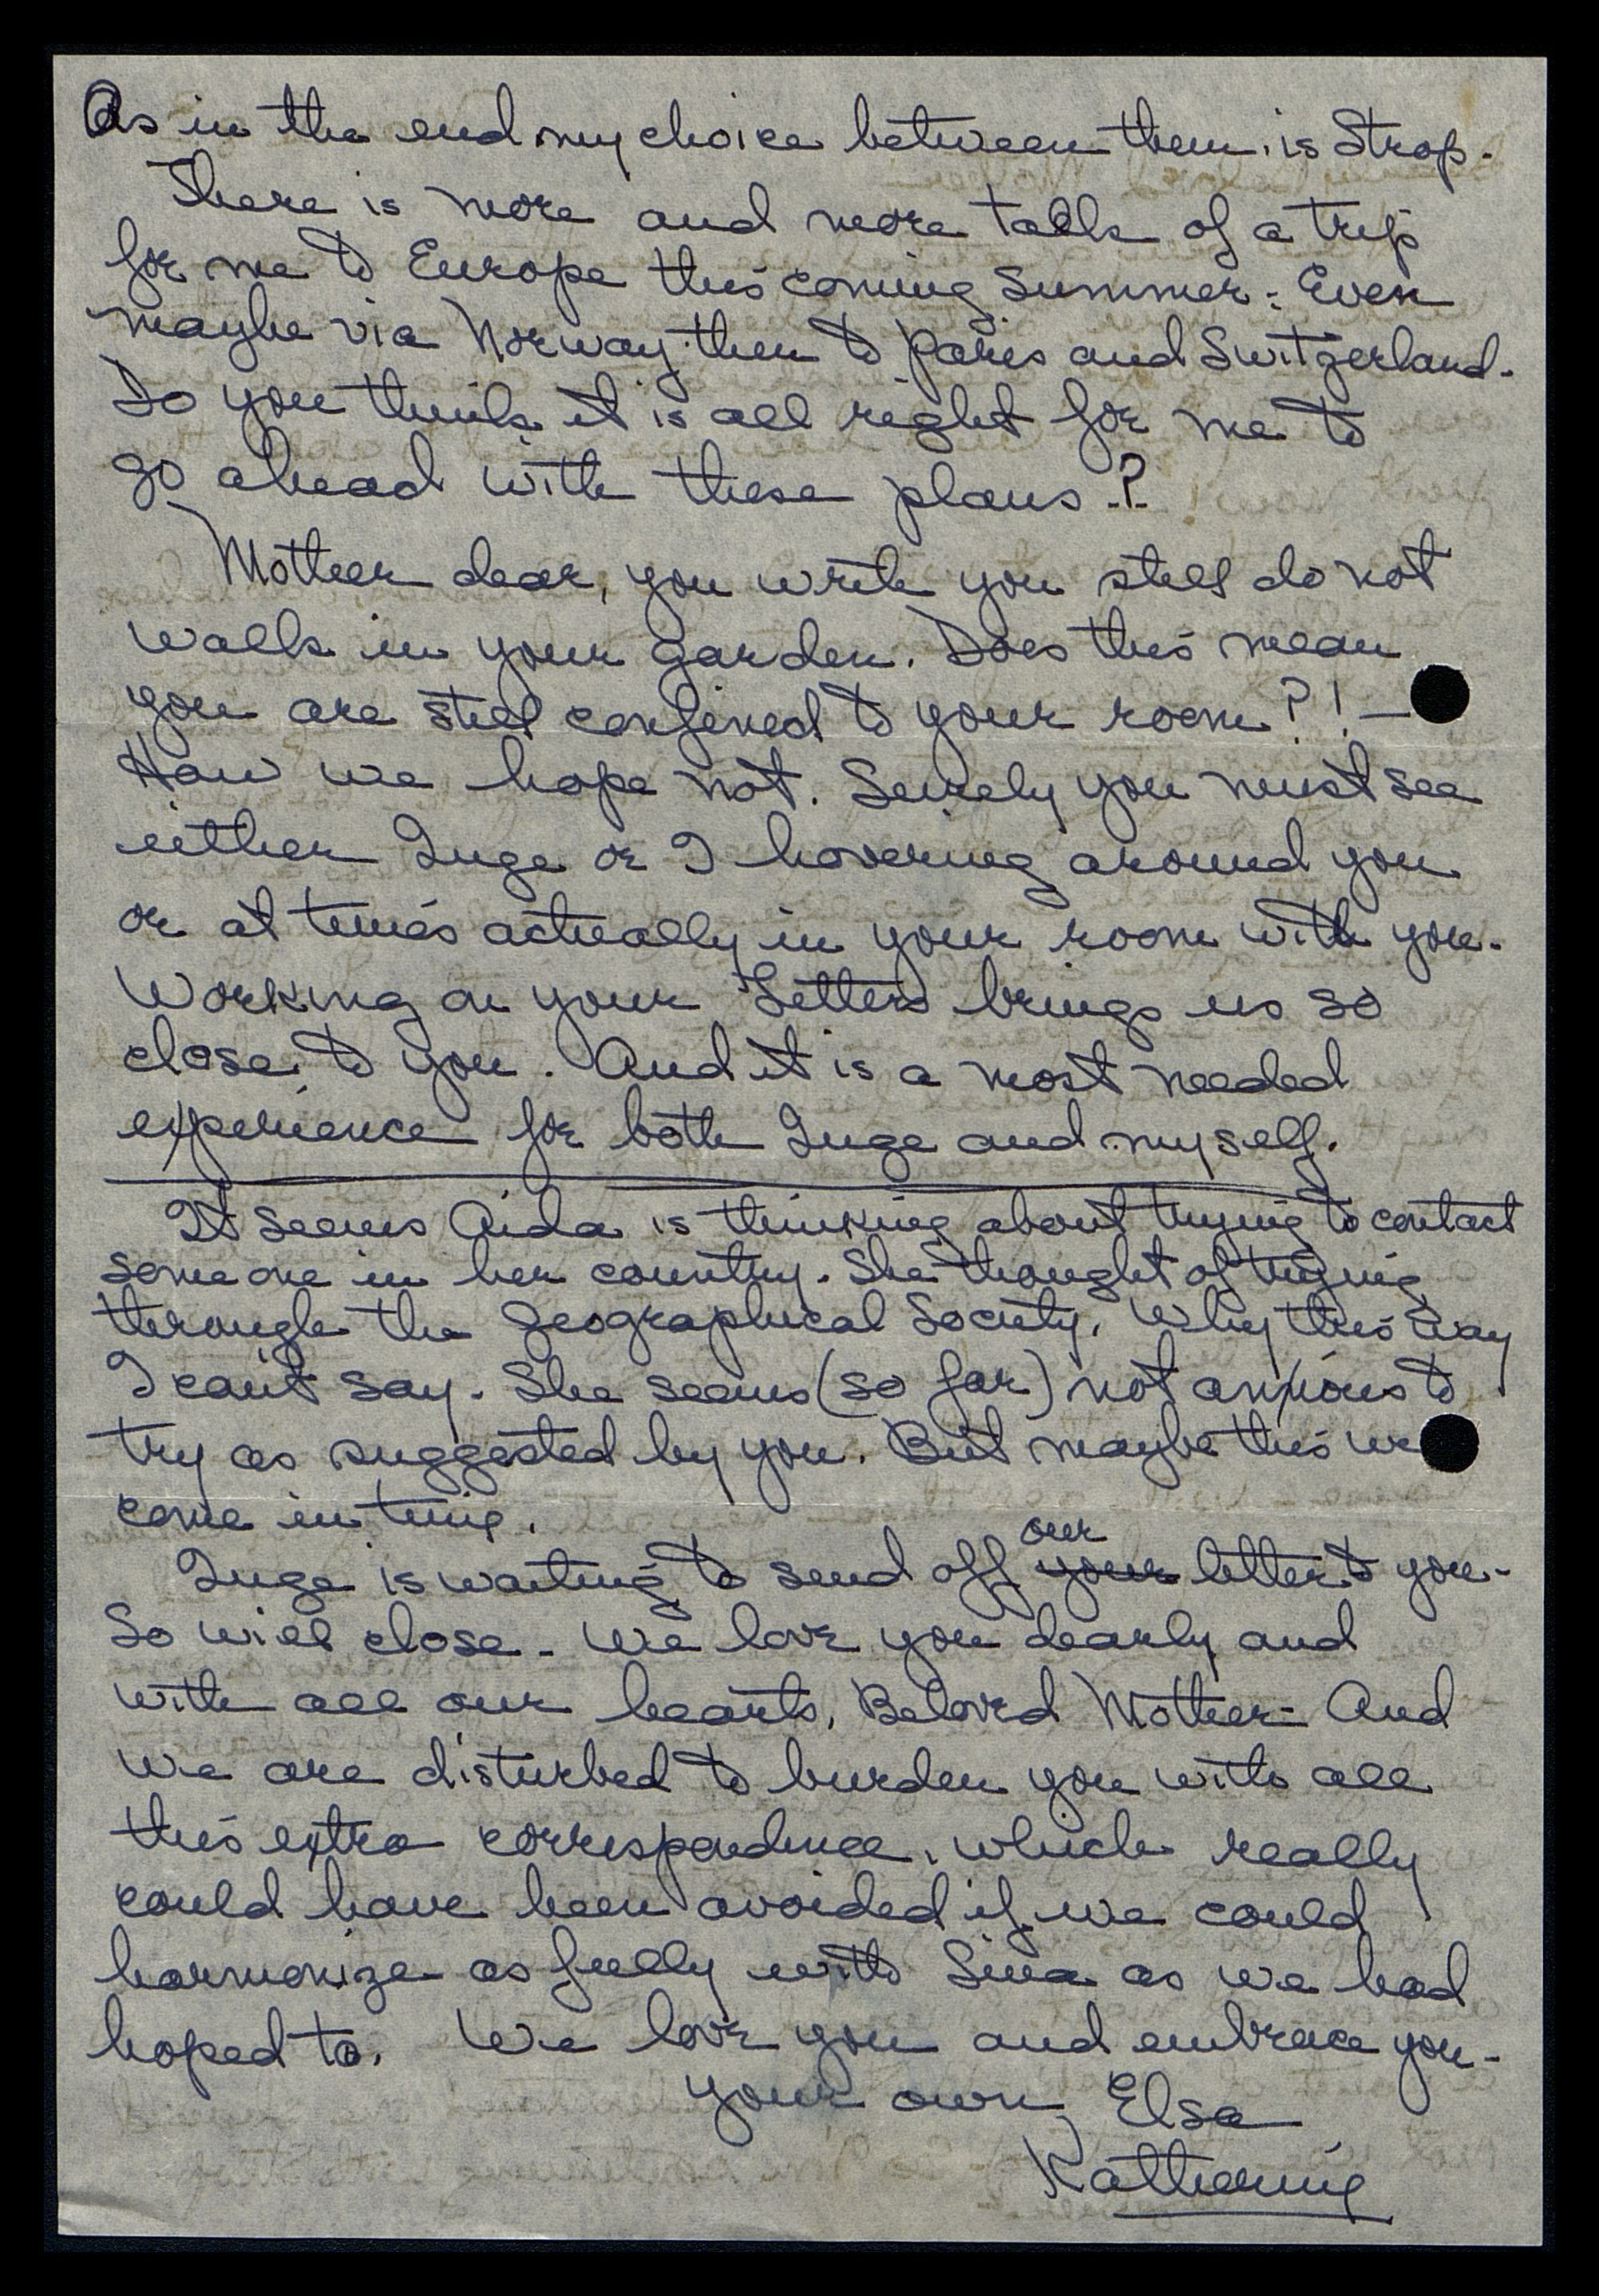 As in the end my choice between them is Strop.
There is more and more talk of a trip
for me to Europe this coming Summer: Even
maybe via Norway then to Paris and Switzerland.
Do you think it is all right for me to
go ahead with these plans?
Mother dear, you write you still do not
walk in your garden. Does this mean
you are still confined to your room?! —
How we hope not. Surely you must see
either Inge or I hovering around you
or at times actually in your room with you.
Working on your Letters brings us so
close to you. And it is a most needed
experience for both Inge and myself.
It seems Aida is thinking about trying to contact
someone in her country. She thought of trying
through the Geographical Society. Why this way
I can't say. She seems (so far) not anxious to
try as suggested by you. But maybe this
come in time.
our
Inge is waiting to send off your letter to you.
So will close - We love you dearly and
with all our hearts, Beloved Mother - And
we are disturbed to burden you with all
this extra correspondence, which really
could have been avoided if we could
harmonize as fully with Sina as we had
hoped to. We love you and embrace you -
your own, Elsa
Katherine